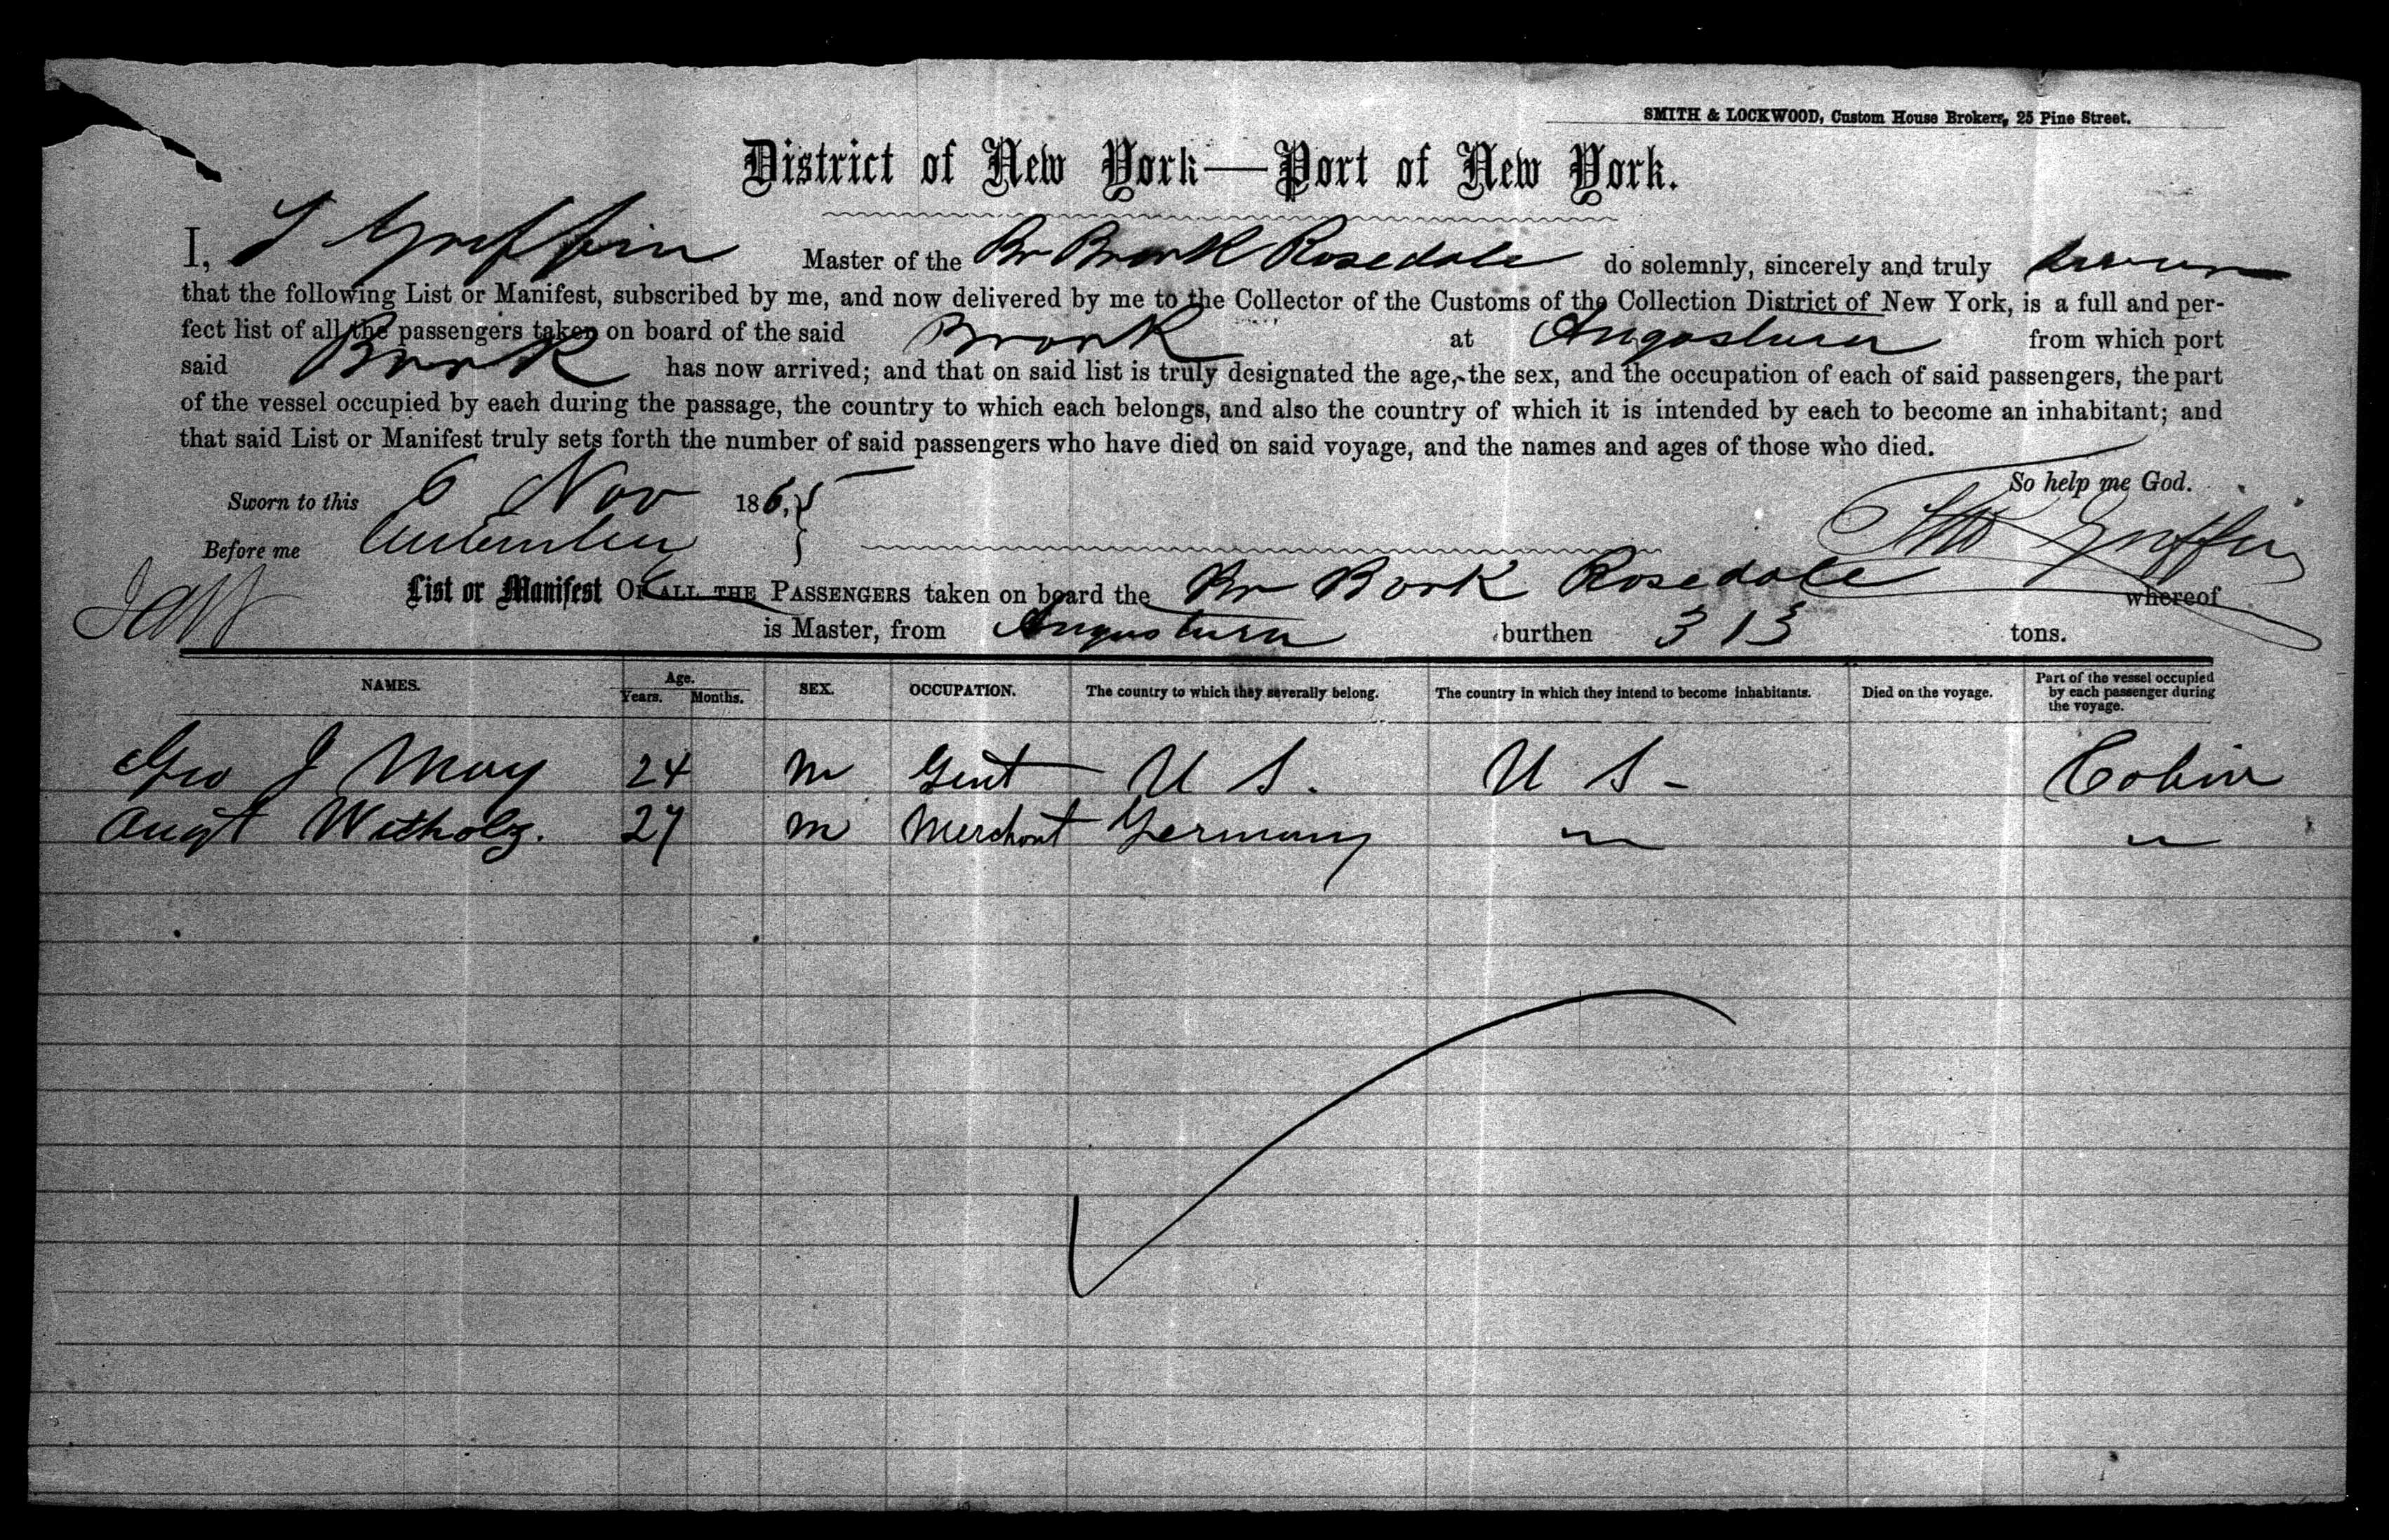 SMITH & LOCKWOOD, Custom House Brokers, 25 Pine Street.
District of New York—Port of New York.
I, Griffin Master of the Br Bark Rosedale do solemnly, sincerely and truly swear
that the following List or Manifest, subscribed by me, and now delivered by me to the Collector of the Customs of the Collection District of New York, is a full and per-
fect list of all the passengers taken on board of the said Bark at Angostura from which port
said Bark has now arrived; and that on said list is truly designated the age, the sex, and the occupation of each of said passengers, the part
of the vessel occupied by each during the passage, the country to which each belongs, and also the country of which it is intended by each to become an inhabitant; and
that said List or Manifest truly sets forth the number of said passengers who have died on said voyage, and the names and ages of those who died.
So help me God.
Sworn to this 6 Nov 1865
Before me
Griffin
List or Manifest OF ALL THE PASSENGERS taken on board the Br Bark Rosedale whereof
is Master, from Angostura burthen 313 tons.
NAMES. Age. Years. Months. SEX. OCCUPATION. The country to which they severally belong. The country in which they intend to become inhabitants. Died on the voyage. Part of the vessel occupied by each passenger during the voyage.
Geo J May 24 m Gent U S. U S - Cabin
Augt Witholz. 27 m Merchant Germany " "